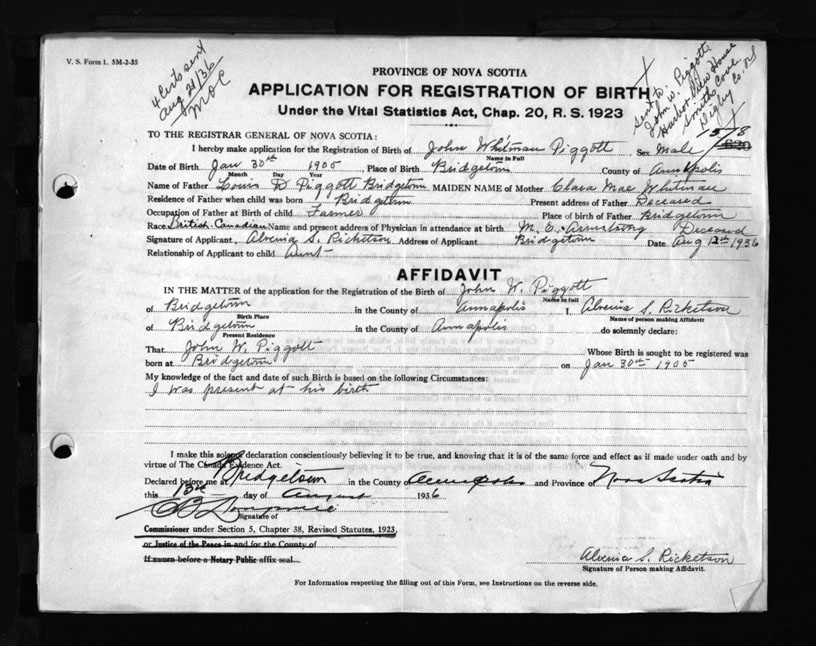 V. S. Form 1. 5M-2-35
4 Certs sent
Aug 21/36
M O C
Sent to
John W. Piggott
Harbor View House
Smiths Cove
Digby Co. N S
PROVINCE OF NOVA SCOTIA
APPLICATION FOR REGISTRATION OF BIRTH
Under the Vital Statistics Act, Chap. 20, R. S. 1923
TO THE REGISTRAR GENERAL OF NOVA SCOTIA:
1578
I hereby make application for the Registration of Birth of John Whitman Piggott Sex Male
Name in Full
Date of Birth Jan 30th 1905 Place of Birth Bridgetown County of Annapolis
Month Day Year
Name of Father Louis D Piggott Bridgetown MAIDEN NAME of Mother Clara Mae Whitman
Residence of Father when child was born Bridgetown Present address of Father Deceased
Occupation of Father at Birth of child Farmer Place of birth of Father Bridgetown
Race British-Canadian Name and present address of Physician in attendance at birth M. E. Armstrong Deceased
Signature of Applicant Alvenia S. Ricketson Address of Applicant Bridgetown Date Aug 12th 1936
Relationship of Applicant to child Aunt
AFFIDAVIT
IN THE MATTER of the application for the Registration of the Birth of John W. Piggott
Name in full
of Bridgetown in the County of Annapolis I, Alvenia S. Ricketson
Birth Place Name of person making Affidavit
of Bridgetown in the County of Annapolis do solemnly declare:
Present Residence
That John W. Piggott Whose Birth is sought to be registered was
born at Bridgetown on Jan 30th 1905
My knowledge of the fact and date of such Birth is based on the following Circumstances:
I was present at his birth
I make this solemn declaration conscientiously believing it to be true, and knowing that it is of the same force and effect as if made under oath and by
virtue of The Canada Evidence Act.
Declared before me at Bridgetown in the County of Annapolis and Province of Nova Scotia
this 13th day of August 1936
Signature of
Commissioner under Section 5, Chapter 38, Revised Statutes, 1923
or Justice of the Peace in and for the County of
If sworn before a Notary Public affix seal.
Alvenia S. Ricketson
Signature of Person making Affidavit.
For Information respecting the filling out of this Form, see Instructions on the reverse side.